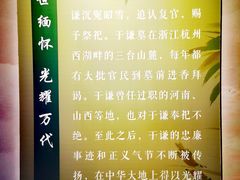 世缅怀 光耀万代
谦沉冤昭雪，追认复官、赐
子祭祀。于谦墓在浙江杭州
西湖畔的三台山麓，每年都
有大批官民到墓前进香拜
谒。于谦曾任过职的河南、
山西等地，也对于谦奉祀不
绝。至此之后，于谦的忠廉
事迹和正义气节不断被传
扬，在中华大地上得以光耀